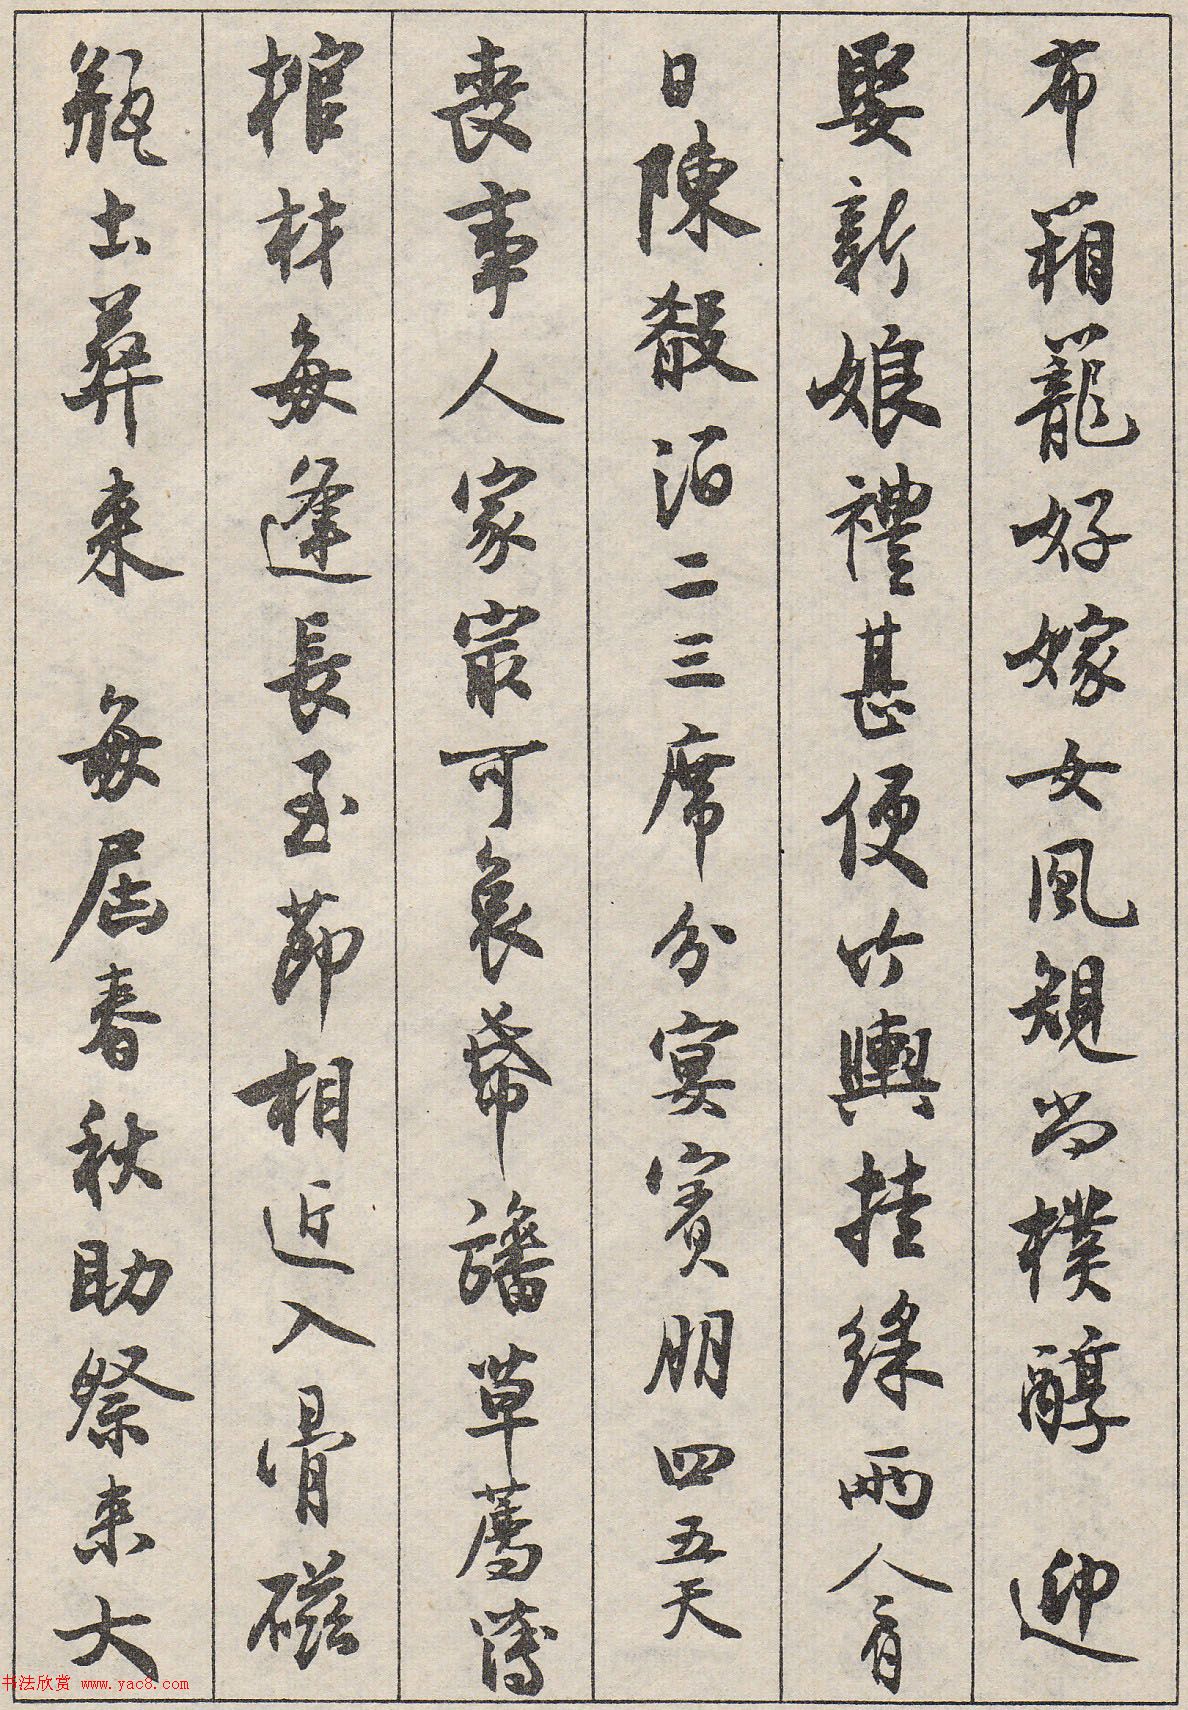 布箱籠好嫁女風規尚樸醇 迎
娶新娘禮甚便竹輿挂綵兩人肩
日陳殽酒二三席分宴賓朋四五天
喪事人家最可哀幸 草薦薄
棺材每逢長至節相近入骨磁
瓶土葬來 每屆春秋助祭来大
书法欣赏 www.yac8.com